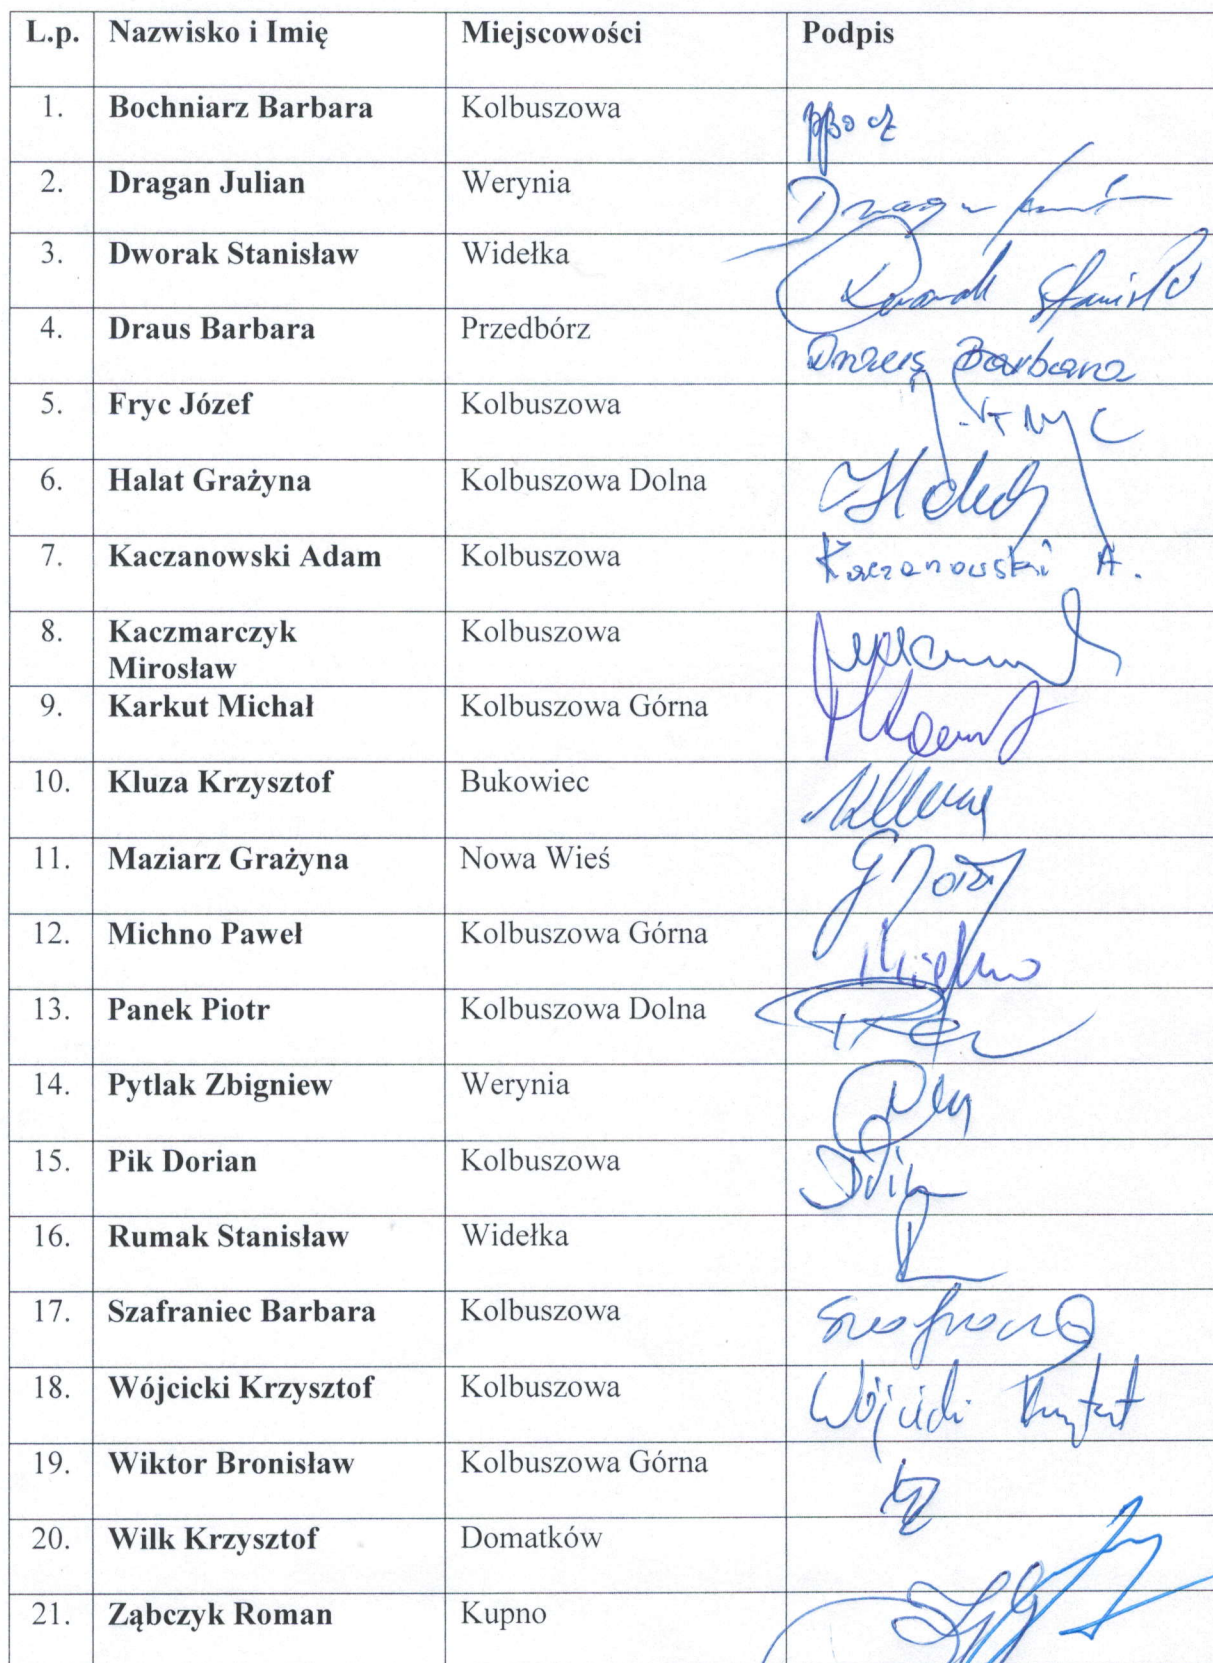 L.p. Nazwisko i Imię Miejscowości Podpis
1. Bochniarz Barbara Kolbuszowa
2. Dragan Julian Werynia
3. Dworak Stanisław Widełka
4. Draus Barbara Przedbórz Draus Barbara
5. Fryc Józef Kolbuszowa
6. Halat Grażyna Kolbuszowa Dolna
7. Kaczanowski Adam Kolbuszowa Kaczanowski A.
8. Kaczmarczyk Kolbuszowa
Mirosław
9. Karkut Michał Kolbuszowa Górna
10. Kluza Krzysztof Bukowiec
11. Maziarz Grażyna Nowa Wieś
12. Michno Paweł Kolbuszowa Górna
13. Panek Piotr Kolbuszowa Dolna
14. Pytlak Zbigniew Werynia
15. Pik Dorian Kolbuszowa
16. Rumak Stanisław Widełka
17. Szafraniec Barbara Kolbuszowa
18. Wójcicki Krzysztof Kolbuszowa
19. Wiktor Bronisław Kolbuszowa Górna
20. Wilk Krzysztof Domatków
21. Ząbczyk Roman Kupno